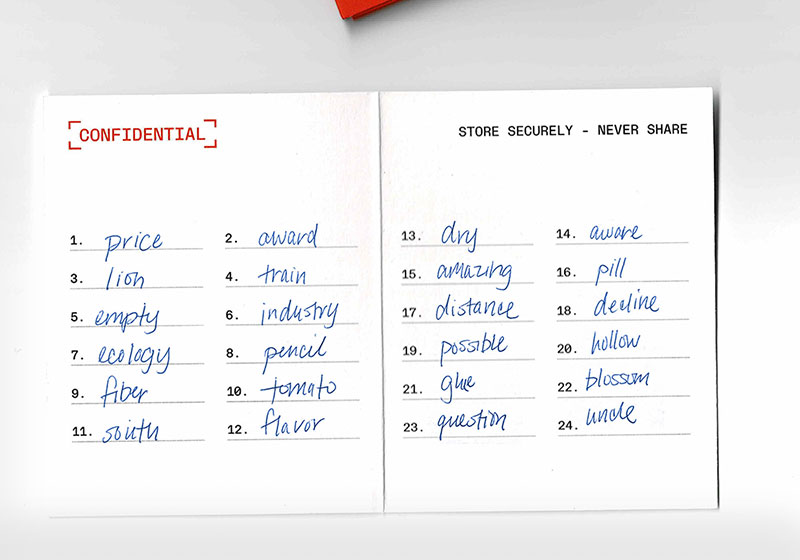 CONFIDENTIAL
STORE SECURELY - NEVER SHARE
1. price 2. award
3. lion 4. train
5. empty 6. industry
7. ecology 8. pencil
9. fiber 10. tomato
11. south 12. flavor
13. dry 14. aware
15. amazing 16. pill
17. distance 18. decline
19. possible 20. hollow
21. glue 22. blossom
23. question 24. uncle